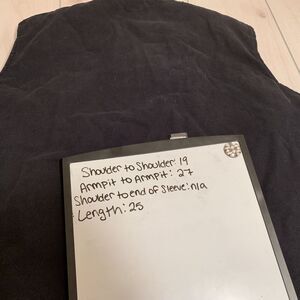 Shoulder to Shoulder: 19
Armpit to Armpit: 27
Shoulder to end of Sleeve: n/a
Length: 25